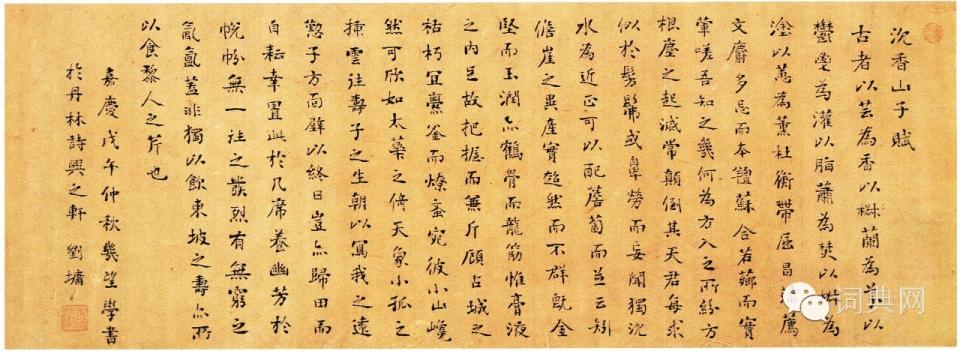 沈香山子賦
古者以芸為香以椒蘭為芬以
鬱鬯為灌以脂蕭為焚以椒為
塗以蕙為薰杜衡帶屈昌蒲薦
文麝多忌而本羶蘇合若薌而實
葷嗟吾知之幾何為六入之所紛方
根塵之起滅常顛倒其天君每求
似於髣髴或鼻勞而妄聞獨沈
水為近正可以配薝蔔而並云矧
儋崖之異產實超然而不群既金
堅而玉潤亦鶴骨而龍筋惟膏液
之內足故把握而兼斤顧占城之
枯朽宜爨釜而燎蚉宛彼小山巉
然可欣如太華之倚天象小孤之
插雲往壽子之生朝以寫我之遠
懃子方面壁以終日豈亦歸田而
自耘幸置此於几席養幽芳於
帨帉無一往之發烈有無窮之
氤氳蓋非獨以飲東坡之壽亦所
以食黎人之芹也
嘉慶戊午仲秋幾望學書
於丹林詩興之軒 劉墉
词典网